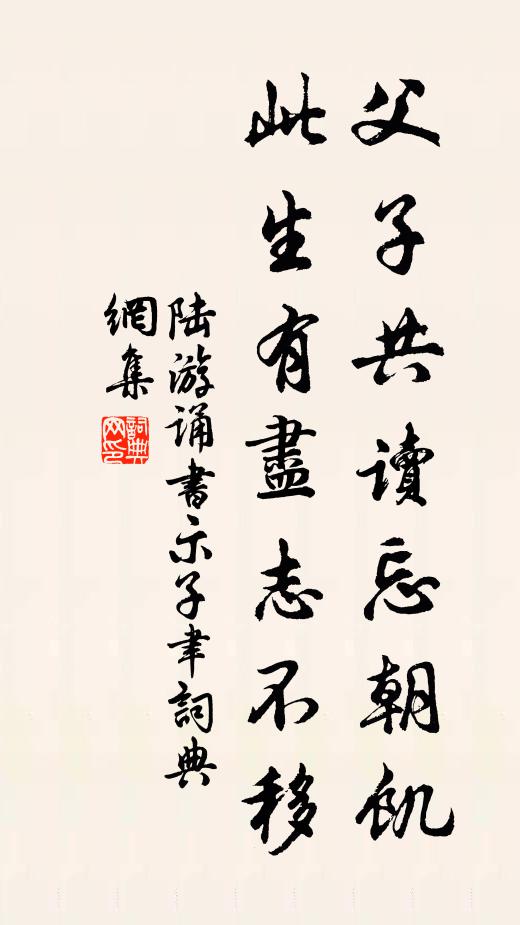 父子共讀忘朝飢
此生有盡志不移
陆游誦書示子聿詞典
網集
詞典
网印